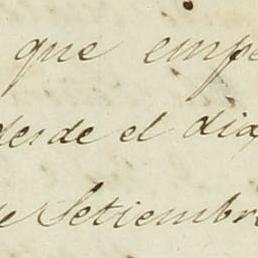 que empe
desde el dia
de Setiembre